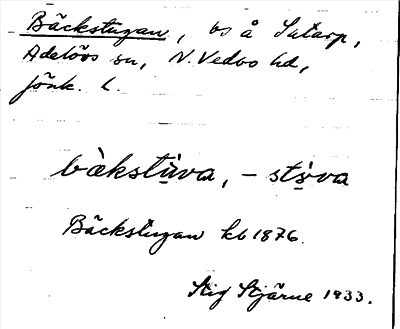 Bäckstugan, bs å Sutarp,
Adelövs sn, N. Vedbo hd,
Jönk. l.
bàkstùva, – stòva
Bäckstugan kb 1876.
Stig Stjärne 1933.